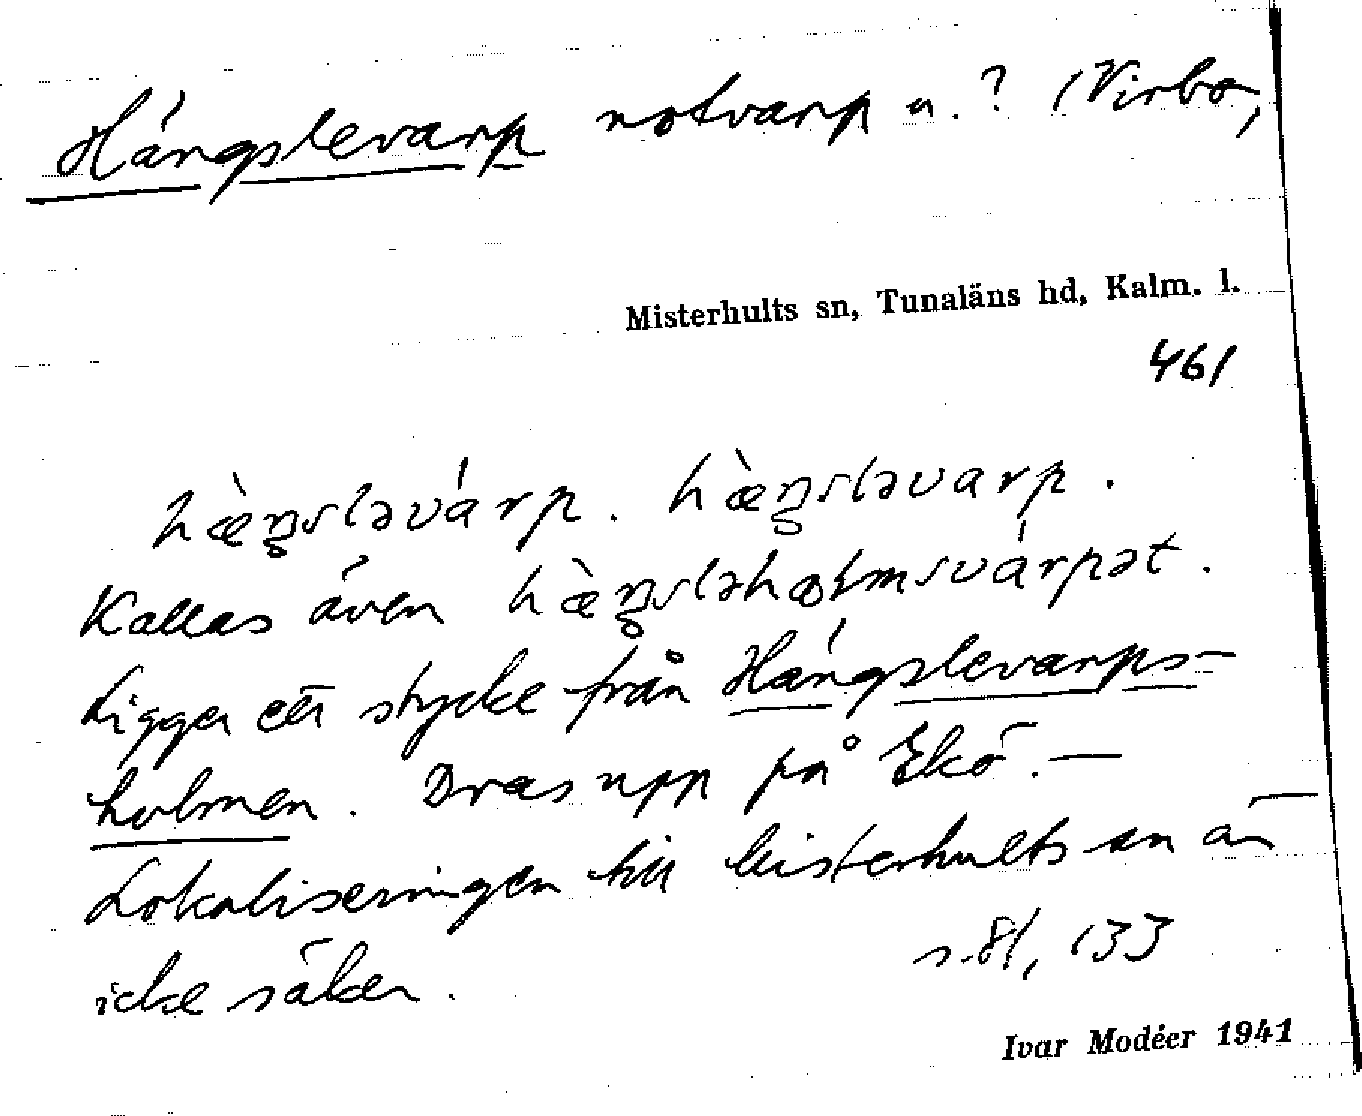 Hängslevarp notvarp n.? (Virbo,
Misterhults sn, Tunaläns hd, Kalm. l.
461
hæ̀ŋ̥sləvárp. hæ̀ŋ̥sləvarp.
Kallas även hæ̀ŋ̥sləhɷlmsvárpət.
Ligger ett stycke från Hängslevarps-
holmen. Dras upp på Ekö. —
Lokaliseringen till Misterhults sn är
icke säker. s. 81, 133
Ivar Modéer 1941